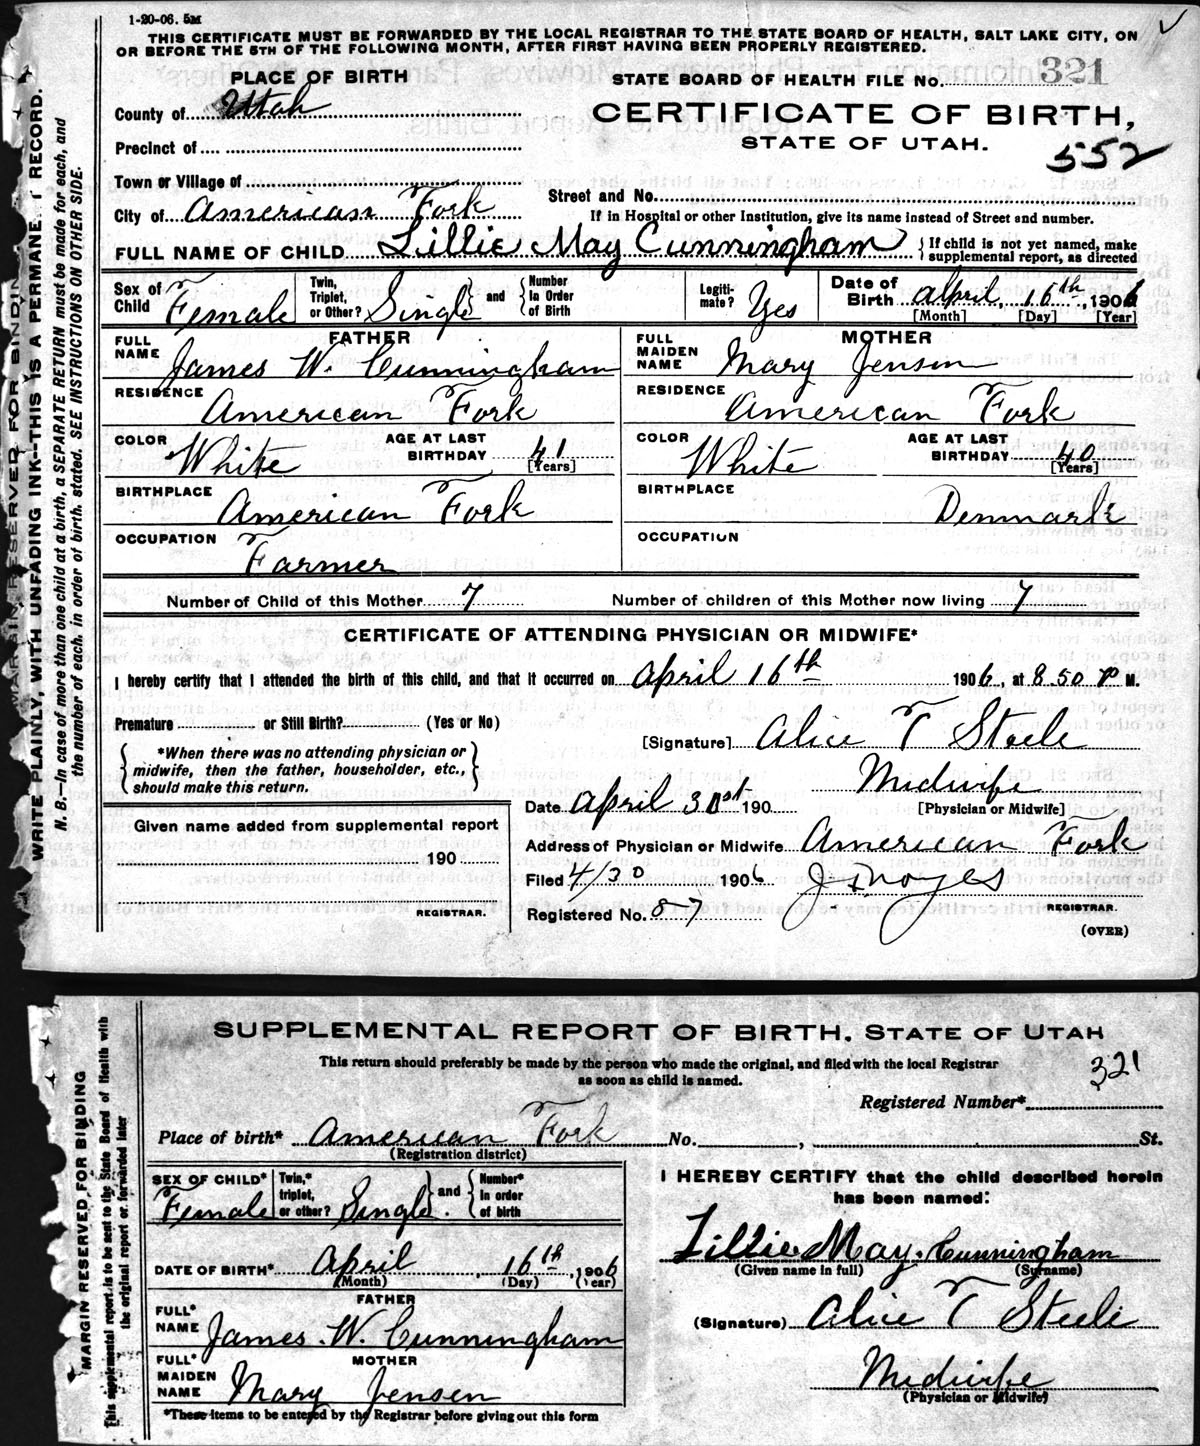 1-20-06. 5M
THIS CERTIFICATE MUST BE FORWARDED BY THE LOCAL REGISTRAR TO THE STATE BOARD OF HEALTH, SALT LAKE CITY, ON
OR BEFORE THE 5TH OF THE FOLLOWING MONTH, AFTER FIRST HAVING BEEN PROPERLY REGISTERED.
PLACE OF BIRTH
STATE BOARD OF HEALTH FILE No. 321
County of Utah
CERTIFICATE OF BIRTH,
STATE OF UTAH.
552
Precinct of
Town or Village of
Street and No.
City of American Fork
If in Hospital or other Institution, give its name instead of Street and number.
FULL NAME OF CHILD Lillie May Cunningham { If child is not yet named, make supplemental report, as directed
Sex of Child Female
Twin, Triplet, or Other? Single } and { Number in Order of Birth
Legitimate? Yes
Date of Birth April, 16th, 1906
[Month] [Day] [Year]
FATHER
FULL NAME James W. Cunningham
RESIDENCE American Fork
COLOR White AGE AT LAST BIRTHDAY 41 [Years]
BIRTHPLACE American Fork
OCCUPATION Farmer
MOTHER
FULL MAIDEN NAME Mary Jensen
RESIDENCE American Fork
COLOR White AGE AT LAST BIRTHDAY 40 [Years]
BIRTHPLACE Denmark
OCCUPATION
Number of Child of this Mother 7 Number of children of this Mother now living 7
CERTIFICATE OF ATTENDING PHYSICIAN OR MIDWIFE*
I hereby certify that I attended the birth of this child, and that it occurred on April 16th 1906, at 8 50 P M.
Premature or Still Birth? (Yes or No)
{ *When there was no attending physician or
midwife, then the father, householder, etc.,
should make this return. }
[Signature] Alice T Steele
Midwife
[Physician or Midwife]
Date April 30st 190
Given name added from supplemental report
190
REGISTRAR.
Address of Physician or Midwife American Fork
Filed 4/30 1906 J. F. Noyes
REGISTRAR.
Registered No. 87
(OVER)
MARGIN RESERVED FOR BINDING
WRITE PLAINLY, WITH UNFADING INK--THIS IS A PERMANENT RECORD.
N. B.—In case of more than one child at a birth, a SEPARATE RETURN must be made for each, and
the number of each, in order of birth, stated. SEE INSTRUCTIONS ON OTHER SIDE.
SUPPLEMENTAL REPORT OF BIRTH. STATE OF UTAH
This return should preferably be made by the person who made the original, and filed with the local Registrar
as soon as child is named.
321
Registered Number*
Place of birth* American Fork No. , St.
(Registration district)
SEX OF CHILD* Female
Twin,* triplet, or other? Single } and { Number* in order of birth
DATE OF BIRTH* April, 16th, 1906
(Month) (Day) (Year)
FATHER
FULL* NAME James W. Cunningham
MOTHER
FULL* MAIDEN NAME Mary Jensen
*These items to be entered by the Registrar before giving out this form
I HEREBY CERTIFY that the child described herein
has been named:
Lillie May. Cunningham
(Given name in full) (Surname)
(Signature) Alice T Steele
Midwife
(Physician or Midwife)
MARGIN RESERVED FOR BINDING
This supplemental report is to be sent to the State Board of Health with
the original report or forwarded later